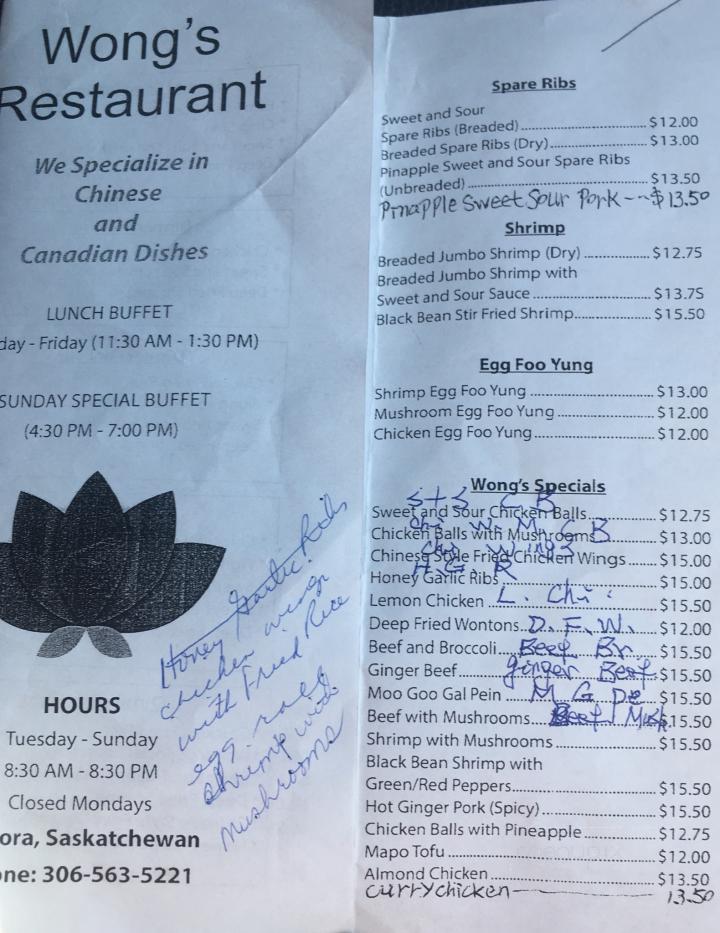 Wong's
Restaurant
We Specialize in
Chinese
and
Canadian Dishes
LUNCH BUFFET
day - Friday (11:30 AM - 1:30 PM)
SUNDAY SPECIAL BUFFET
(4:30 PM - 7:00 PM)
Honey Garlic Ribs
Chicken wings
with Fried Rice
egg roll
Shrimp with
Mushrooms
HOURS
Tuesday - Sunday
8:30 AM - 8:30 PM
Closed Mondays
ora, Saskatchewan
one: 306-563-5221
Spare Ribs
Sweet and Sour
Spare Ribs (Breaded) $12.00
Breaded Spare Ribs (Dry) $13.00
Pinapple Sweet and Sour Spare Ribs
(Unbreaded) $13.50
Pinapple Sweet Sour Pork -- $13.50
Shrimp
Breaded Jumbo Shrimp (Dry) $12.75
Breaded Jumbo Shrimp with
Sweet and Sour Sauce $13.75
Black Bean Stir Fried Shrimp $15.50
Egg Foo Yung
Shrimp Egg Foo Yung $13.00
Mushroom Egg Foo Yung $12.00
Chicken Egg Foo Yung $12.00
Wong's Specials
S+S C B
Sweet and Sour Chicken Balls $12.75
Chi W. M C B
Chicken Balls with Mushrooms $13.00
Chi Wings
Chinese Style Fried Chicken Wings $15.00
H. G. R
Honey Garlic Ribs $15.00
Lemon Chicken L. Chi $15.50
Deep Fried Wontons D. F. W. $12.00
Beef and Broccoli Beef Br $15.50
Ginger Beef ginger Beef $15.50
Moo Goo Gal Pein M G Pe $15.50
Beef with Mushrooms Beef Mush $15.50
Shrimp with Mushrooms $15.50
Black Bean Shrimp with
Green/Red Peppers $15.50
Hot Ginger Pork (Spicy) $15.50
Chicken Balls with Pineapple $12.75
Mapo Tofu $12.00
Almond Chicken $13.50
curry chicken 13.50